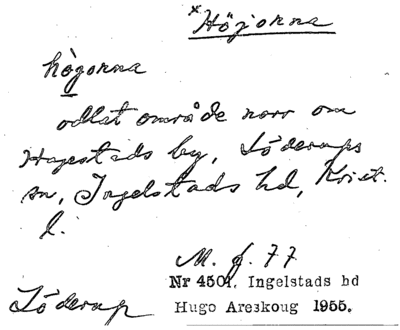 *Höjorna
högorna
odlat område norr om
Hagestads by, Löderups
sn, Ingelstads hd, Krist.
l.
M. f. 77
Nr 4501. Ingelstads hd
Löderup Hugo Areskoug 1955.